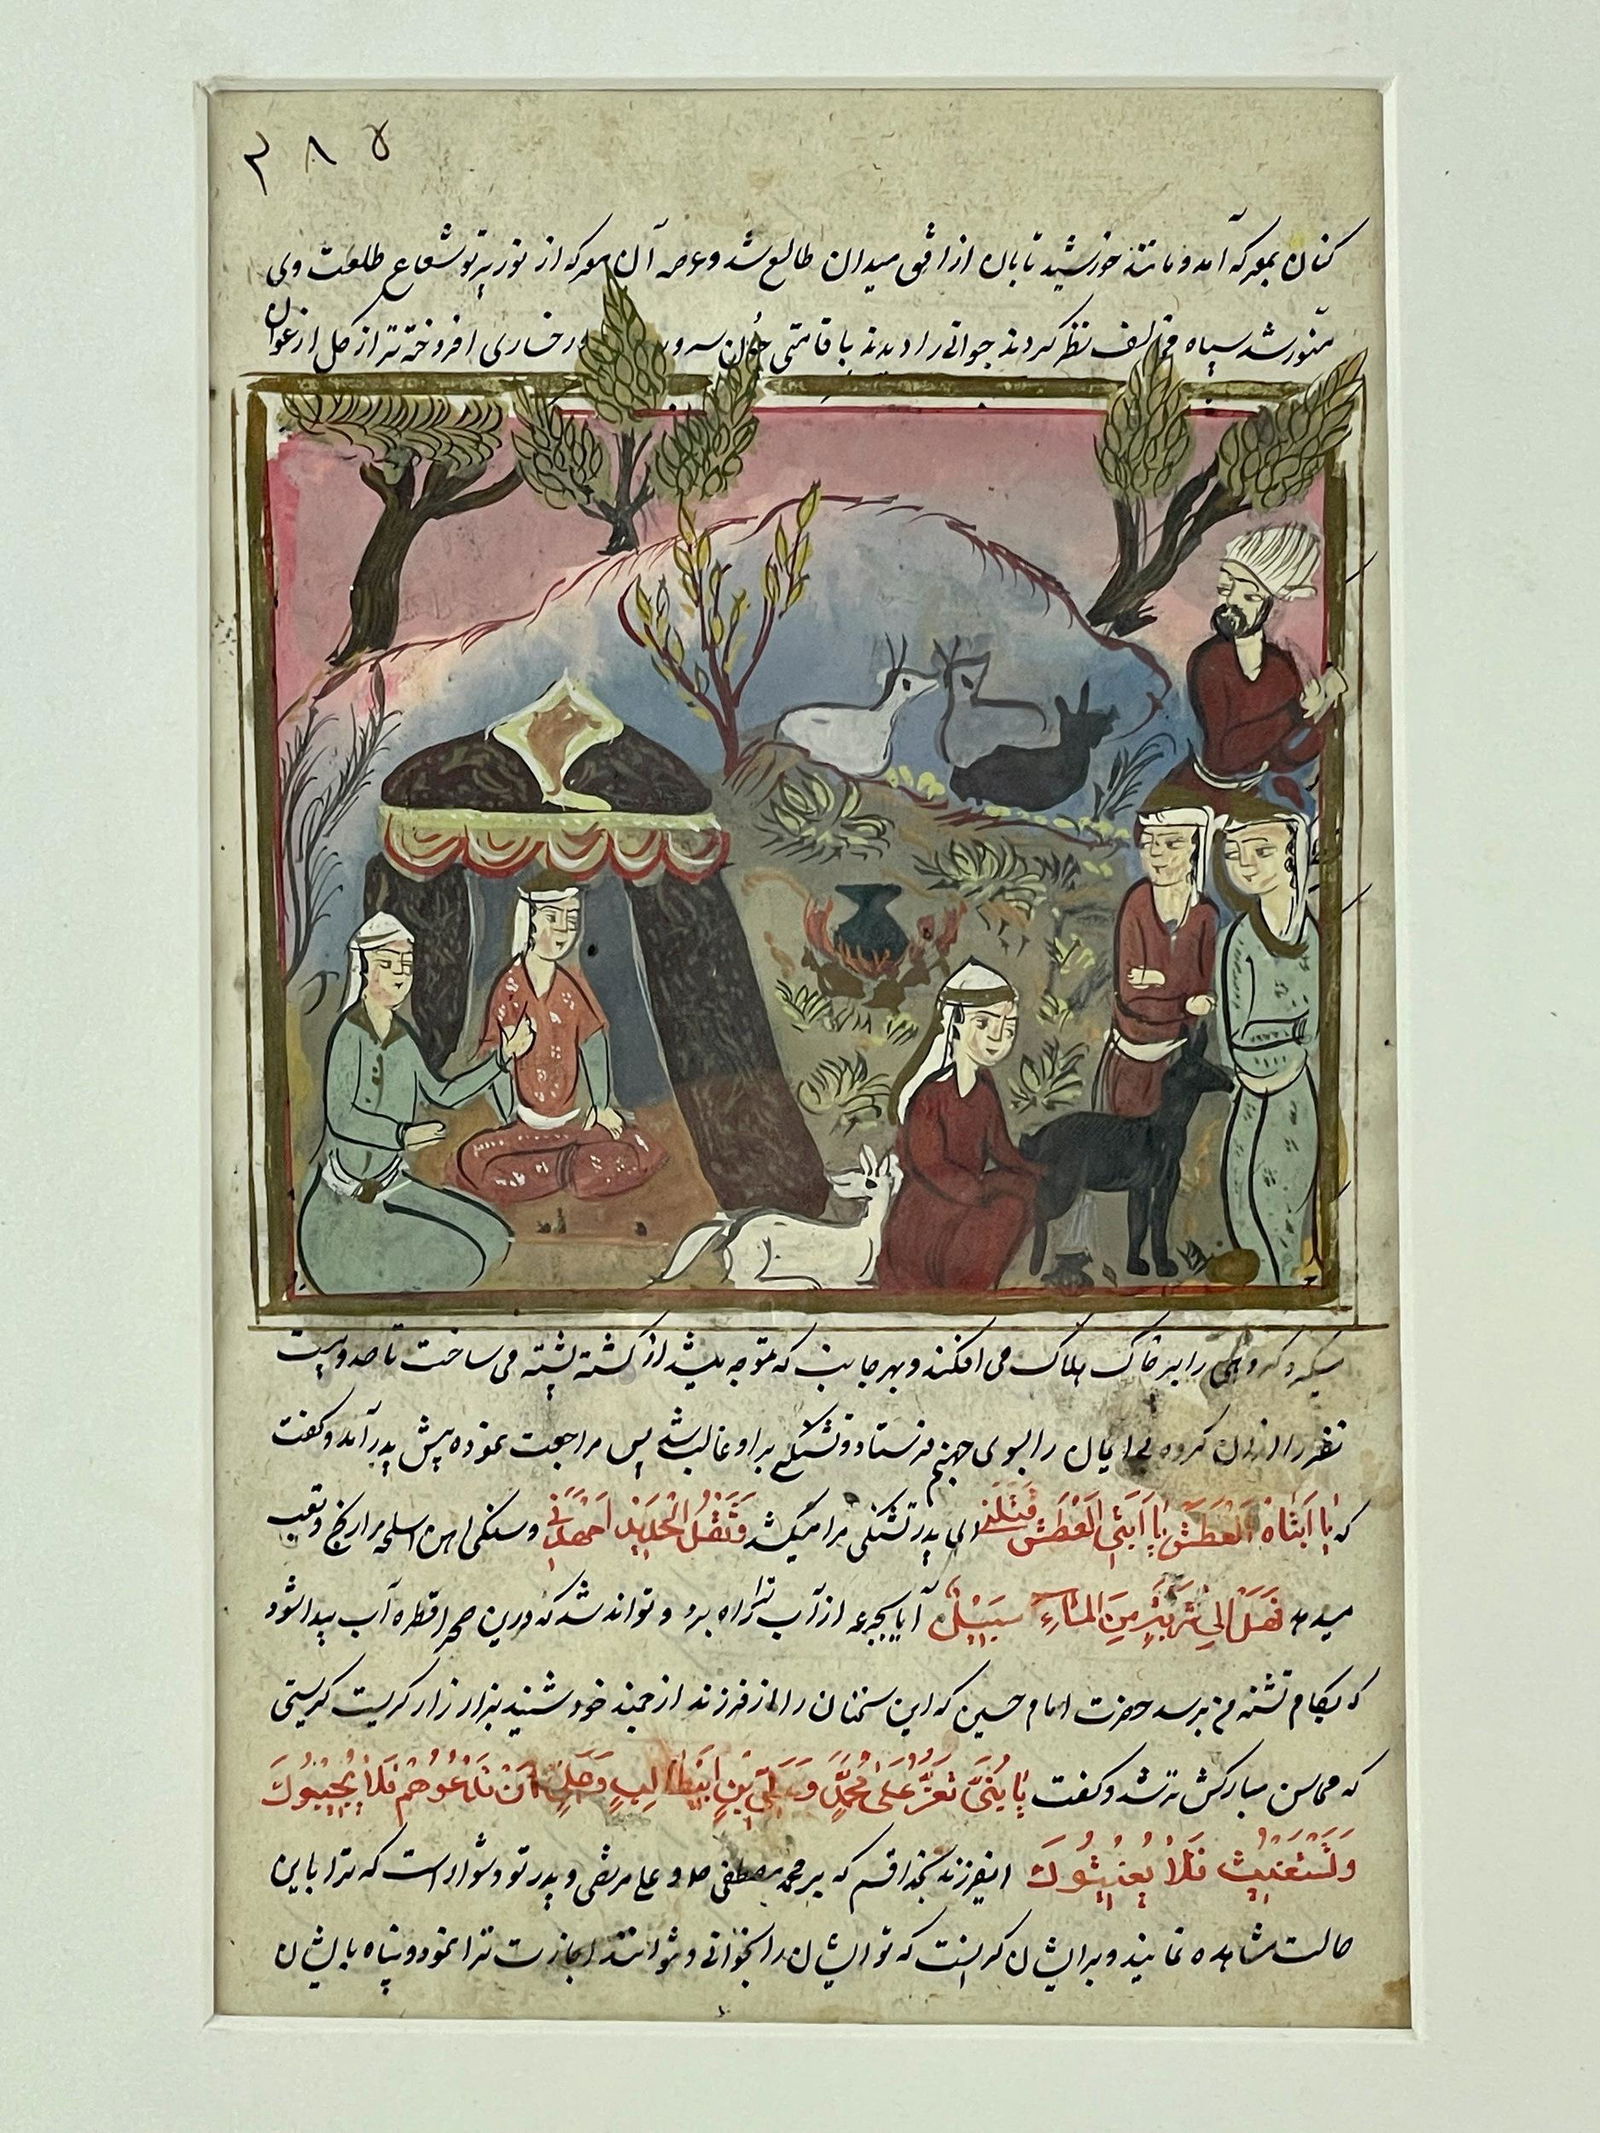 ۳۸۵
کنان بمعرکه آمد و مانند خورشید تابان از افق میدان طالع شد و عرصه آن معرکه از نور پرتو شعاع طلعت وی
منور شد سپاه مخالف نظر کردند جوانی را دیدند با قامتی چون سرو ور خساری افروخته تر از گل ارغوان
را بر خاک هلاک می افکند و بهر جانب که متوجه میشد از کشته پشته می ساخت تا صد و بیست
نفر را از ان گروه بی ایمان را بسوی جهنم فرستاد و تشنگی بر او غالب شد پس مراجعت نموده پیش پدر آمد و گفت
که یا ابتاه العطش یا ابتی العطش قتلنی ای پدر تشنگی مرا میکشد وثقل الحدید اجهدنی و سنگینی این اسلحه مرا رنج و تعب
میدهد فهل الی شربة من الماء سبیل آیا بجرعه از آب ترا راه برد و تواند شد که درین صحرا قطره آب پیدا شود
که بکام تشنه من برسد حضرت امام حسین که این سخنان را از فرزند ارجمند خود شنید بزار زار گریست گریستنی
که محاسن مبارکش تر شد و گفت یا بنی تعز علی محمد و علی بن ابیطالب و علی ان تدعوهم فلا یجیبوک
و تستغیث فلا یغیثوک ایفرزند بخدا قسم که بر محمد مصطفی و علی مرتضی و پدر تو دشوار است که ترا باین
حالت مشاهده نمایند و بر ایشان گرانست که تو ایشان را بخوانی و نتوانند اجازت ترا نمود و پناه بایشان